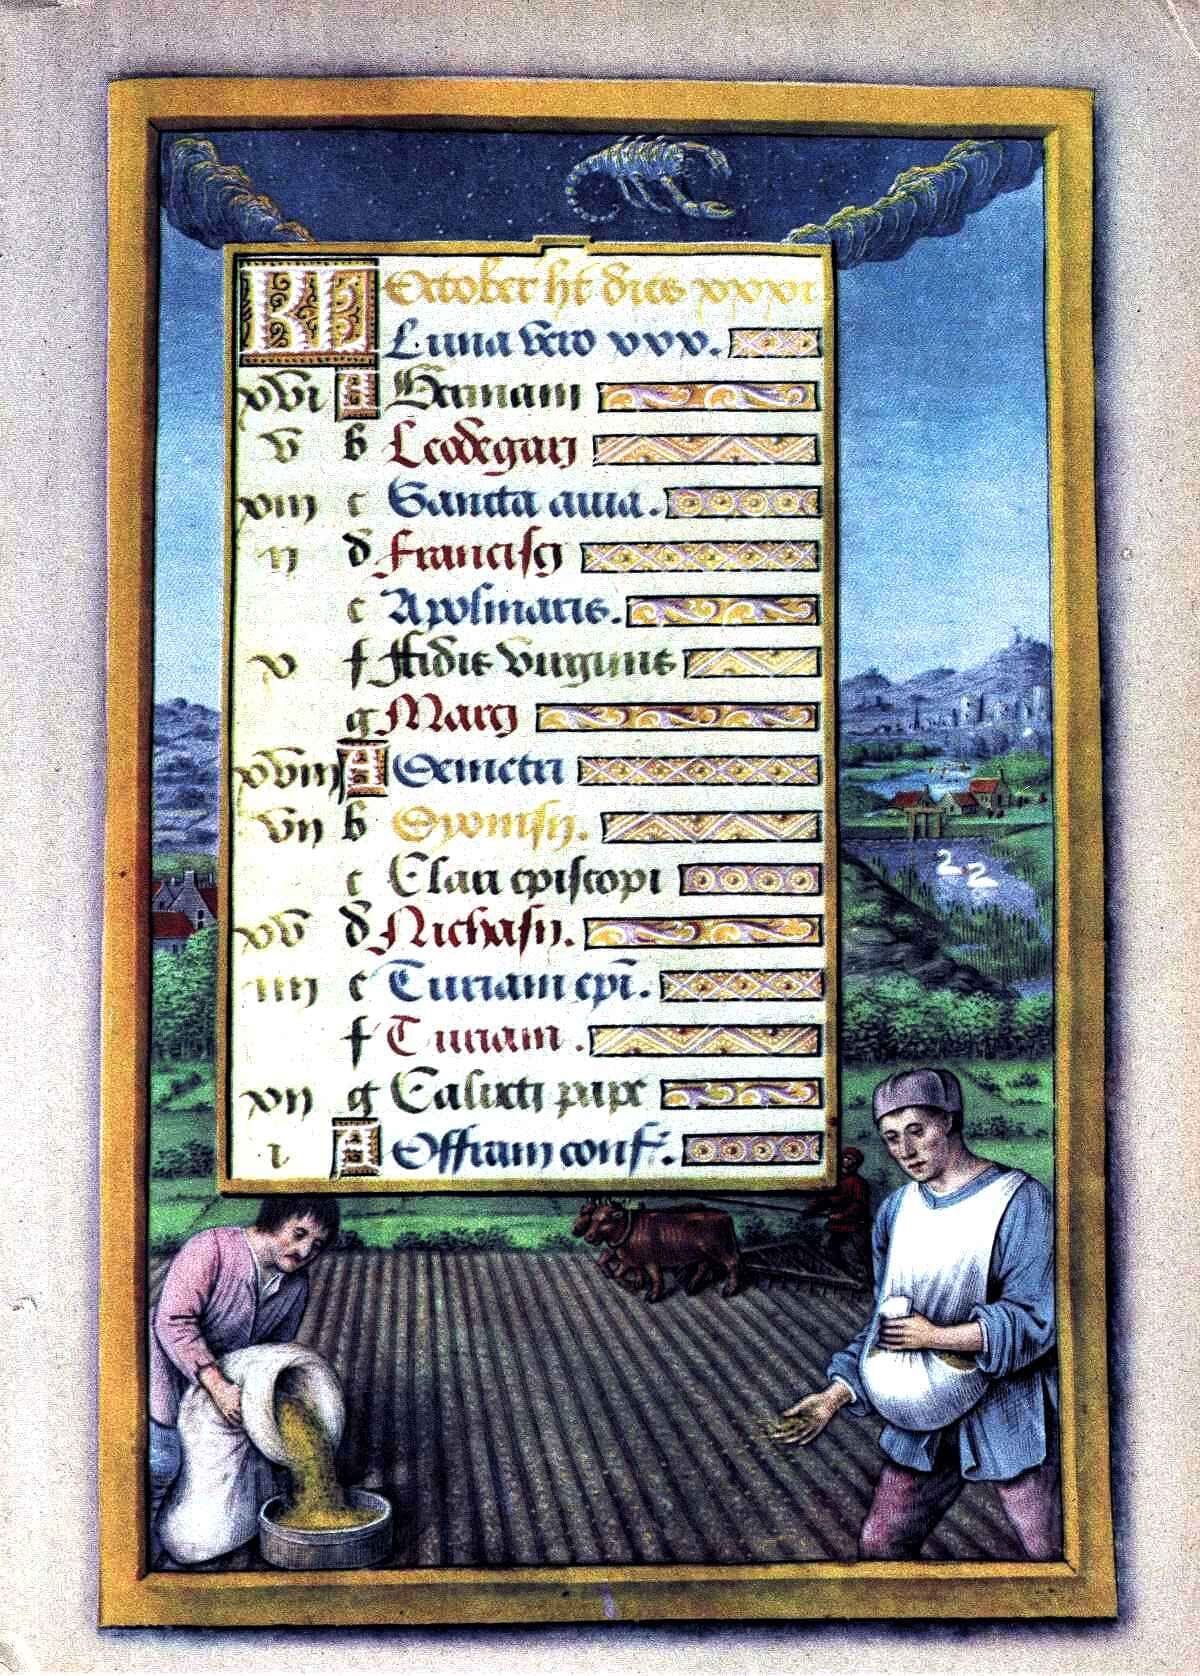 KL October ht dies xxxi
Luna vero xxx.
xvi A Germani
v b Leodegarj
xiii c Sancta avia.
ij d Francisçj
e Apolinaris.
x f Fidis virginis
g Marcj
xviij A Demetri
vij b Dyonisij.
c Clari episcopi
xv d Nichasij.
iiij e Turiani epi.
f Turiani.
xij g Calixti pape
i A Offrani conf.